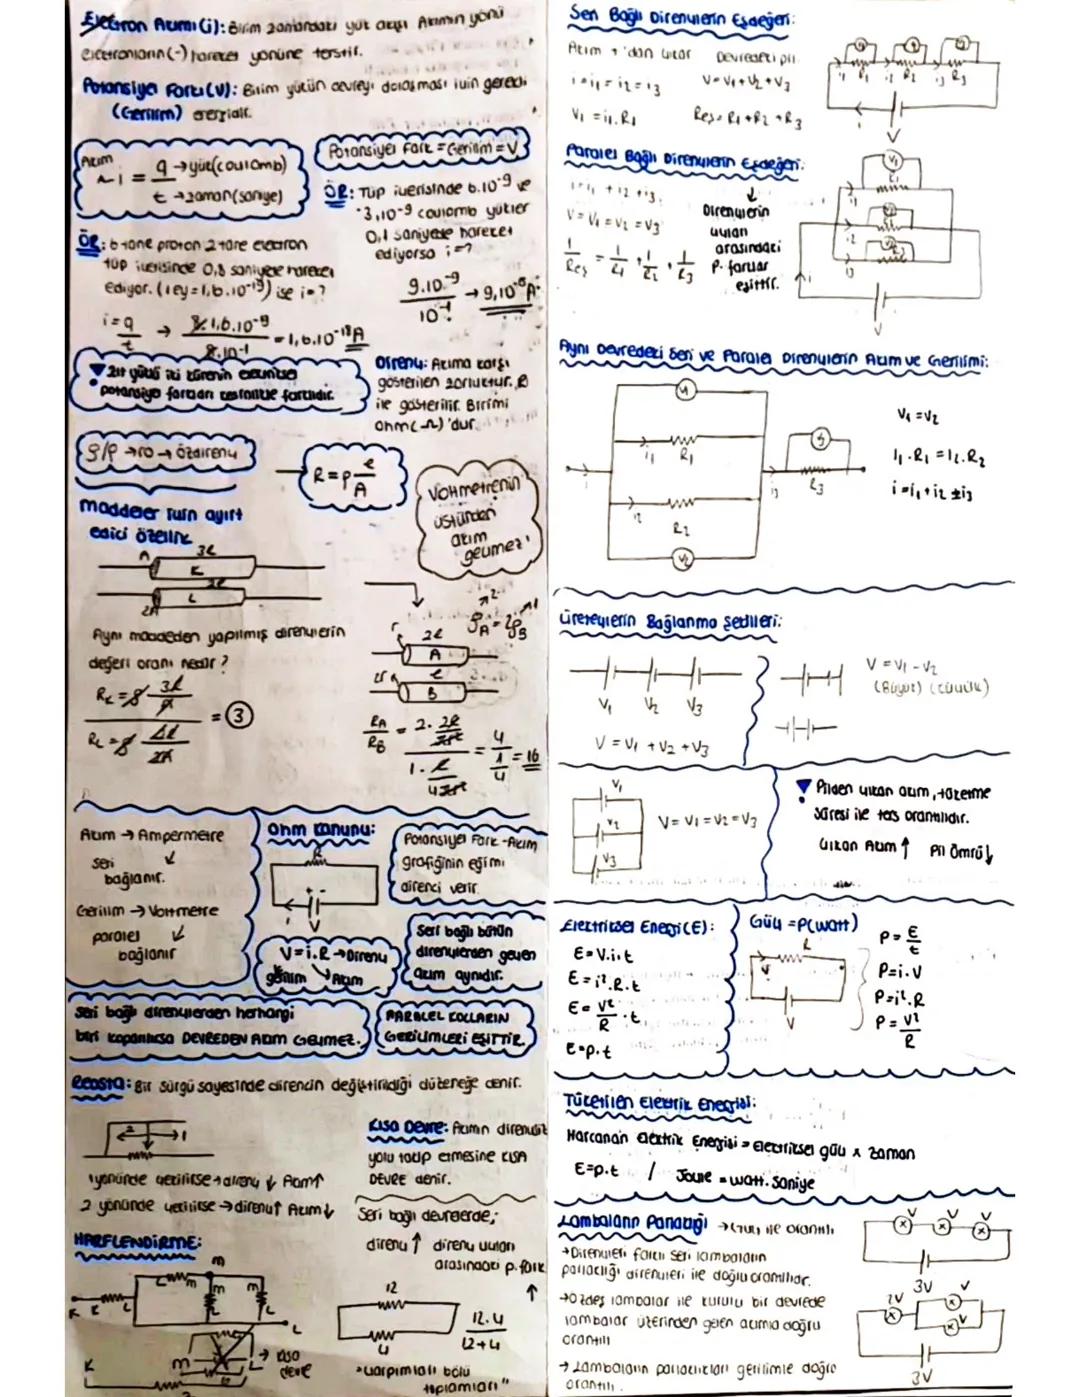 Elektron Akımı (i): Birim zamandaki yük akışı Akımın yönü
elektronların (-) hareket yönüne terstir.
Potansiyel Farkı (V): Birim yükün devreyi dolaşması için gerekli
(Gerilim) enerjidir.
Akım
i = q → yük (coulomb)
t → zaman (saniye)
Potansiyel Fark = Gerilim = V
ÖR: 6 tane proton 2 tane elektron
tüp içerisinde 0,8 saniyede hareket
ediyor. (1 ey = 1,6.10⁻¹⁹) ise i = ?
i = q/t → 8.1,6.10⁻⁹ / 8.10⁻¹ = 1,6.10⁻¹⁸ A
ÖR: Tüp içerisinde 6.10⁻⁹ ve
-3,10⁻⁹ coulomb yükler
0,1 saniyede hareket
ediyorsa i = ?
9.10⁻⁹ / 10⁻¹ → 9,10⁻⁸ A
Zıt yüklü iki kürenin
potansiyel farkları kesinlikle farklıdır.
Direnç: Akıma karşı
gösterilen zorluktur. R
ile gösterilir. Birimi
ohm (Ω) 'dur.
ρ/ρ → ro → özdirenç
R = ρ ℓ/A
Maddeler için ayırt
edici özellik
Voltmetrenin
üstünden
akım
geçmez!
A 3ℓ
K
L
2A
Aynı maddeden yapılmış dirençlerin
değeri oranı nedir?
= 3
ρA = 2ρB
r 2ℓ
A
2r ℓ
B
RA/RB
= 16
Akım → Ampermetre
seri
bağlanır.
Gerilim → Voltmetre
paralel
bağlanır
Ohm Kanunu:
R
+ -
i V
V = i.R → Direnç
gerilim Akım
Potansiyel Fark - Akım
grafiğinin eğimi
direnci verir.
Seri bağlı bütün
dirençlerden geçen
akım aynıdır.
Seri bağlı dirençlerden herhangi
biri koparılırsa DEVREDEN AKIM GEÇMEZ.
PARALEL KOLLARIN
GERİLİMLERİ EŞİTTİR.
Reosta: Bir sürgü sayesinde direncin değiştirildiği düzeneğe denir.
2 1
1 yönünde çekilirse → direnç ↓ Akım ↑
2 yönünde çekilirse → direnç ↑ Akım ↓
Kısa Devre: Akımın dirençsiz
yolu takip etmesine KISA
DEVRE denir.
Seri bağlı devrelerde;
direnç ↑ direnç uçları
arasındaki p. fark
↑
HARFLENDİRME:
K K L
L m
m
m
L
kısa
devre
12
4
12.4
12+4
"Çarpımları bölü
toplamları"
Seri Bağlı Dirençlerin Eşdeğeri:
Akım + 'dan çıkar Devredeki pil
i = i₁ = i₂ = i₃ V = V₁ + V₂ + V₃
V₁ = i₁.R₁ Reş = R₁ + R₂ + R₃
i₁ R₁ i₂ R₂ i₃ R₃
i V
Paralel Bağlı Dirençlerin Eşdeğeri:
i = i₁ + i₂ + i₃
V = V₁ = V₂ = V₃
1/Reş = 1/R₁ + 1/R₂ + 1/R₃
↓
Dirençlerin
uçları
arasındaki
P. farklar
eşittir.
V₁
i₁
i₂
i₃
i
V
Aynı Devredeki Seri ve Paralel Dirençlerin Akım ve Gerilimi:
V₁
i₁ R₁
i i₃ R₃
i₂ R₂
V₂
V₁ = V₂
i₁.R₁ = i₂.R₂
i = i₁ + i₂ = i₃
Üreteçlerin Bağlanma Şekilleri:
V₁ V₂ V₃
V = V₁ + V₂ + V₃
V = V₁ - V₂
(Büyük) (küçük)
V₁
V₂
V₃
V = V₁ = V₂ = V₃
Pilden çıkan akım, tükenme
süresi ile ters orantılıdır.
Çıkan Akım ↑ Pil Ömrü ↓
Elektriksel Enerji (E):
E = V.i.t
E = i².R.t
E = V²/R . t
E = p.t
Güç = P(watt)
P = E/t
P = i.V
P = i².R
P = V²/R
Tüketilen Elektrik Enerjisi:
Harcanan elektrik Enerjisi = Elektriksel güç x zaman
E = p.t / Joule = watt. Saniye
Lambaların Parlaklığı → Güç ile orantılı
→ Dirençleri farklı seri lambaların
parlaklığı dirençleri ile doğru orantılıdır.
→ Özdeş lambalar ile kurulu bir devrede
lambalar üzerinden geçen akımla doğru
orantılı
→ Lambaların parlaklıkları gerilimle doğru
orantılı.
V V V
3V
2V V
V
3V